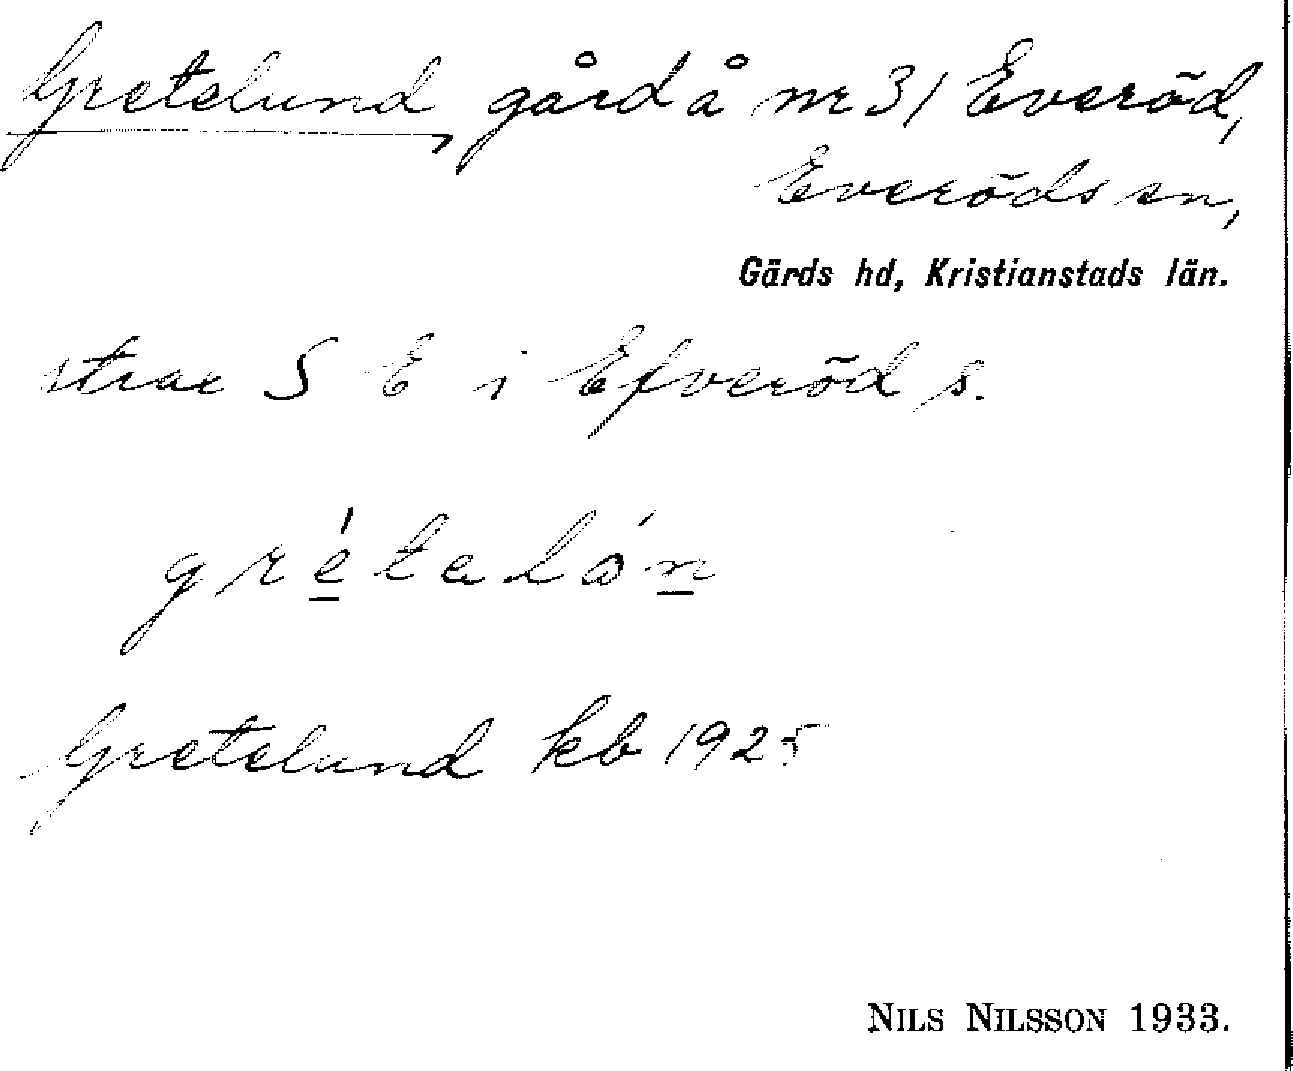 Gretelund, gård å nr 31 Everöd,
Everöds sn,
Gärds hd, Kristianstads län.
strax S E i Efveröd s.
gré̱taló́ṉ
Gretelund kb 1925
NILS NILSSON 1933.